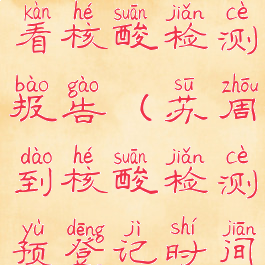 kàn hé suān jiǎn cè
看核酸检测
bào gào sū zhōu
报告（苏周
dào hé suān jiǎn cè
到核酸检测
yù dēng jì shí jiān
预登记时间